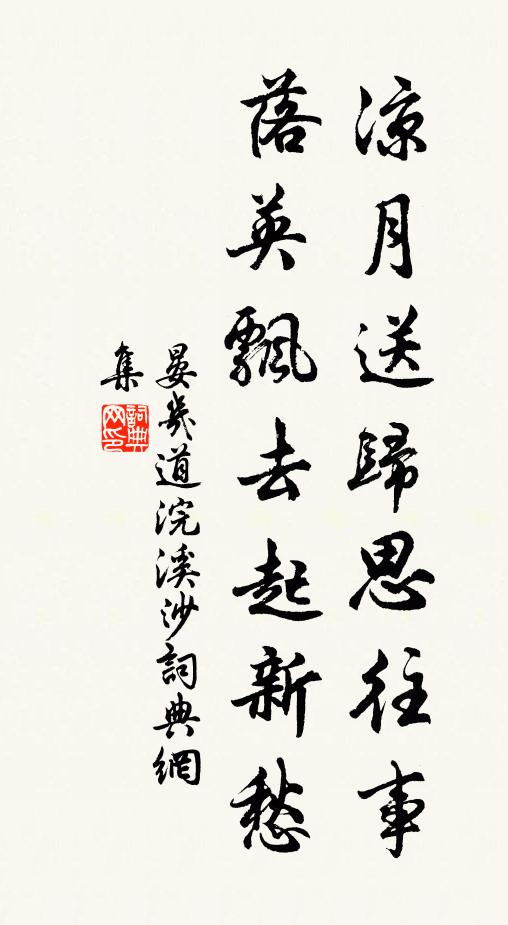 涼月送歸思往事
落英飄去起新愁
晏幾道浣溪沙詞典網
集
詞典
网印